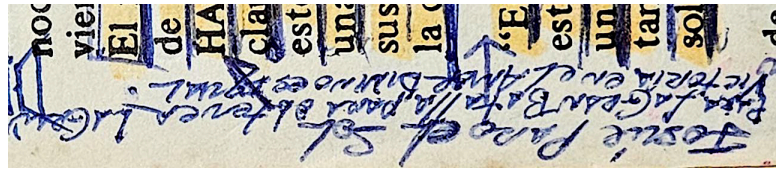 noc
vien
El
de
HA
cla
est
una
sus
la c
“E
est
un
tar
sol
Josué Paro el Sol
Para la Gran Batalla para obtener la Gran
Victoria en el Amor Divino es